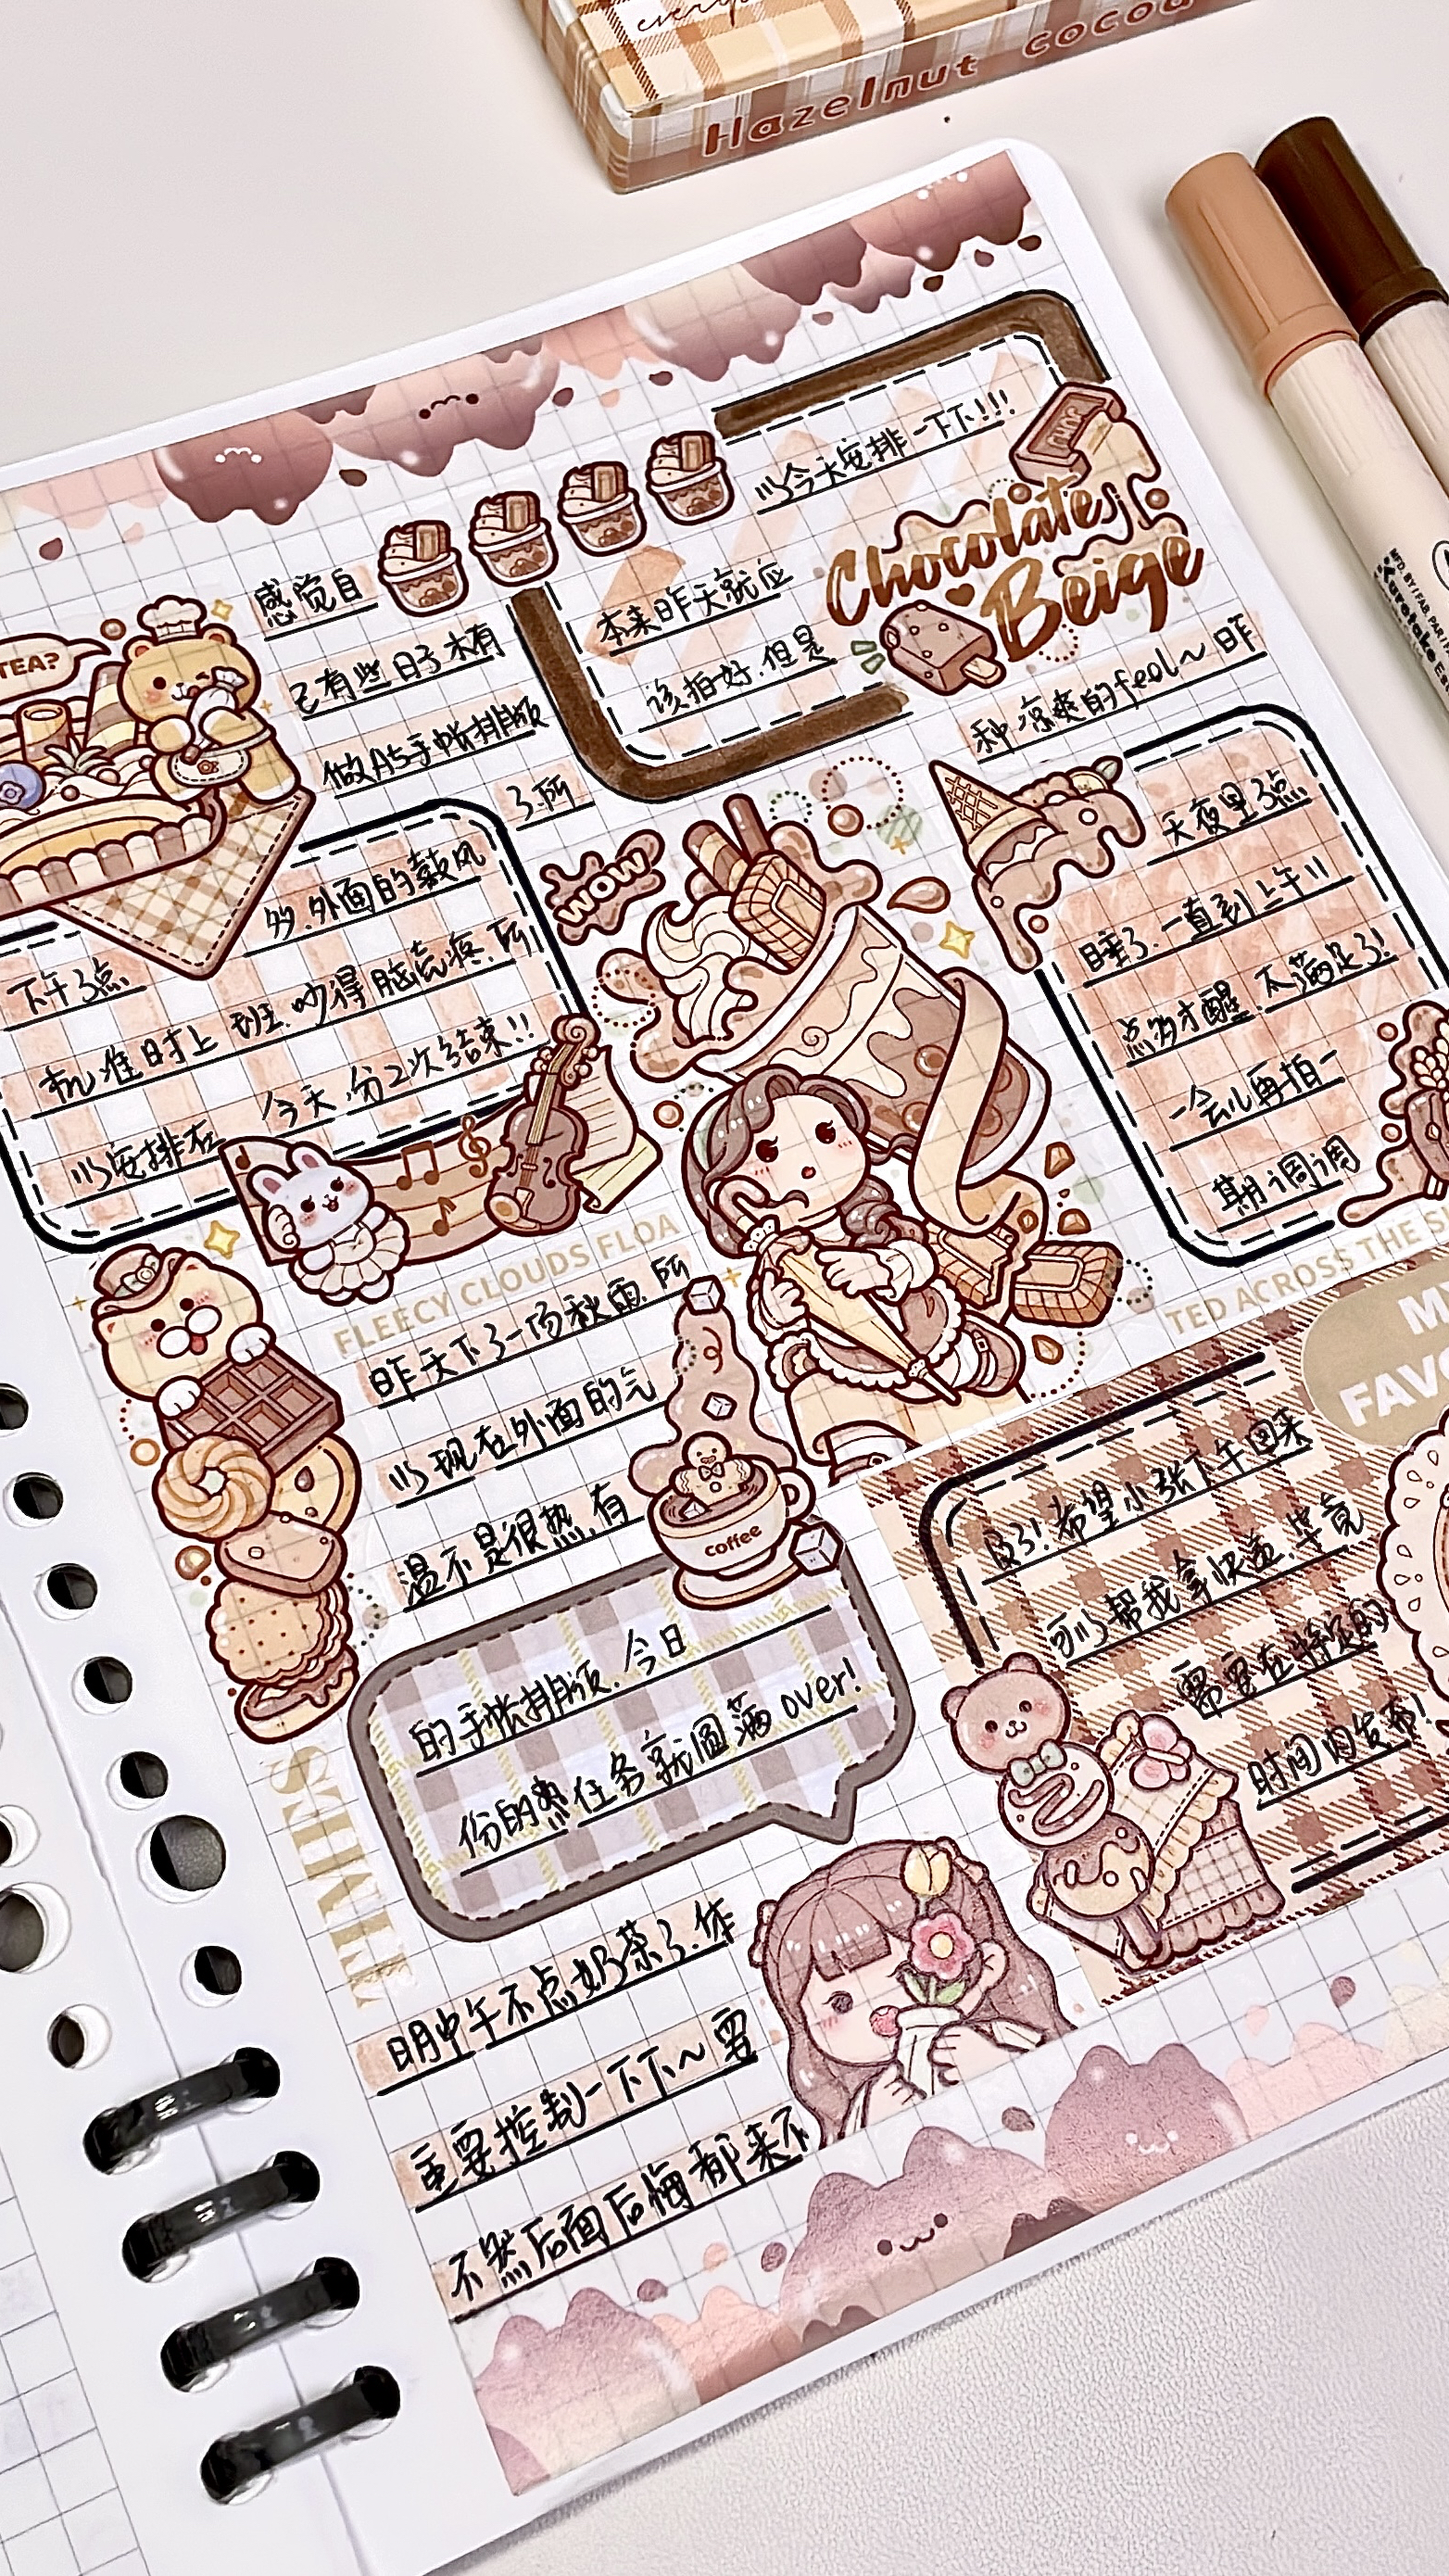 every
Hazelnut cocoa
以今天安排一下下!!!
Chocolate
Beige
感觉自
己有些日子木有
做A5手帐排版
了.所
本来昨天就应
该拍好.但是
TEA?
多.外面的鼓风
下午3点
机准时上班.吵得脑壳疼.所
以安排在
今天.分2次结束!!
WOW
种凉爽的feel~昨
天夜里3点
睡了.一直到上午11
点多才醒.太满足了!
一会儿再拍一
期调调
FLEECY CLOUDS FLOA
TED ACROSS THE S
昨天下了一场秋雨.所
以现在外面的气
温不是很热.有
coffee
的手帐排版.今日
份的任务就圆满over!
SHARE
明中午不点奶茶了.体
重要控制一下下~要
不然后面后悔都来不
M
FAVO
及了!希望小张下午回来
可以帮我拿快递.毕竟
需要在特定的
时间内发布!
MTD. BY/FAB. PAR
Karatake